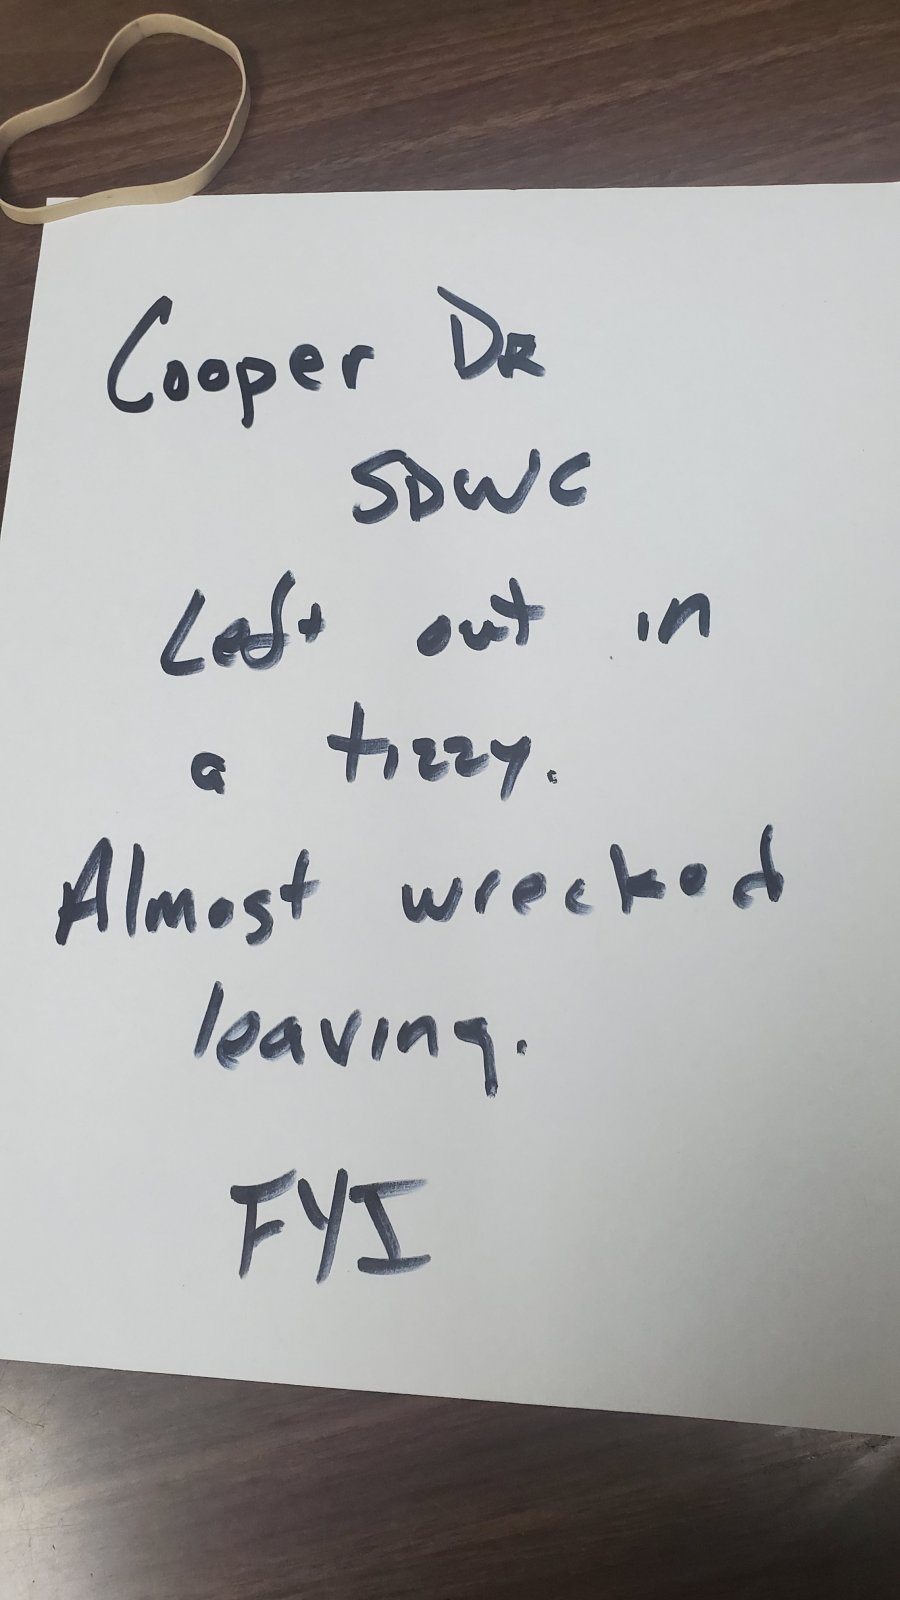 Cooper DR
SDWC
Left out in
a tizzy.
Almost wrecked
leaving.
FYI